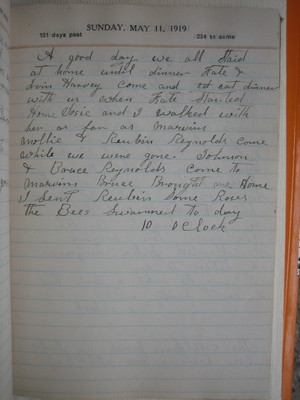 SUNDAY, MAY 11, 1919
131 days past 234 to come
A good day we all staid
at home until dinner Kate &
Harvey Come and eat dinner
with us when Kate Started
Home Josie and I walked with
her as far as Marvins
Mollie & Reubin Reynolds come
while we were gone. Johnson
& Bruce Reynolds Come to
Marvins Bruce Brought me Home
I Sent Reubin Some Roses
the Bees Swarmed to day
10 O Clock